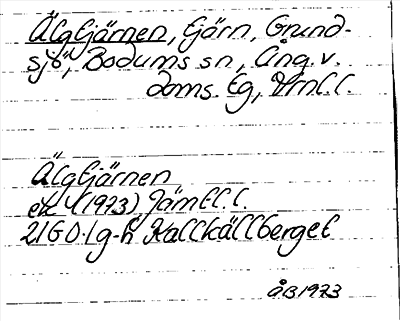 Älgtjärnen, tjärn, Grund-
sjö, Bodums sn, Ång. v.
doms. tg, Vrnl. l.
Älgtjärnen
ek (1973) Jämtl. l.
21G 0-1g-h Kallkällberget
ÅB 1973